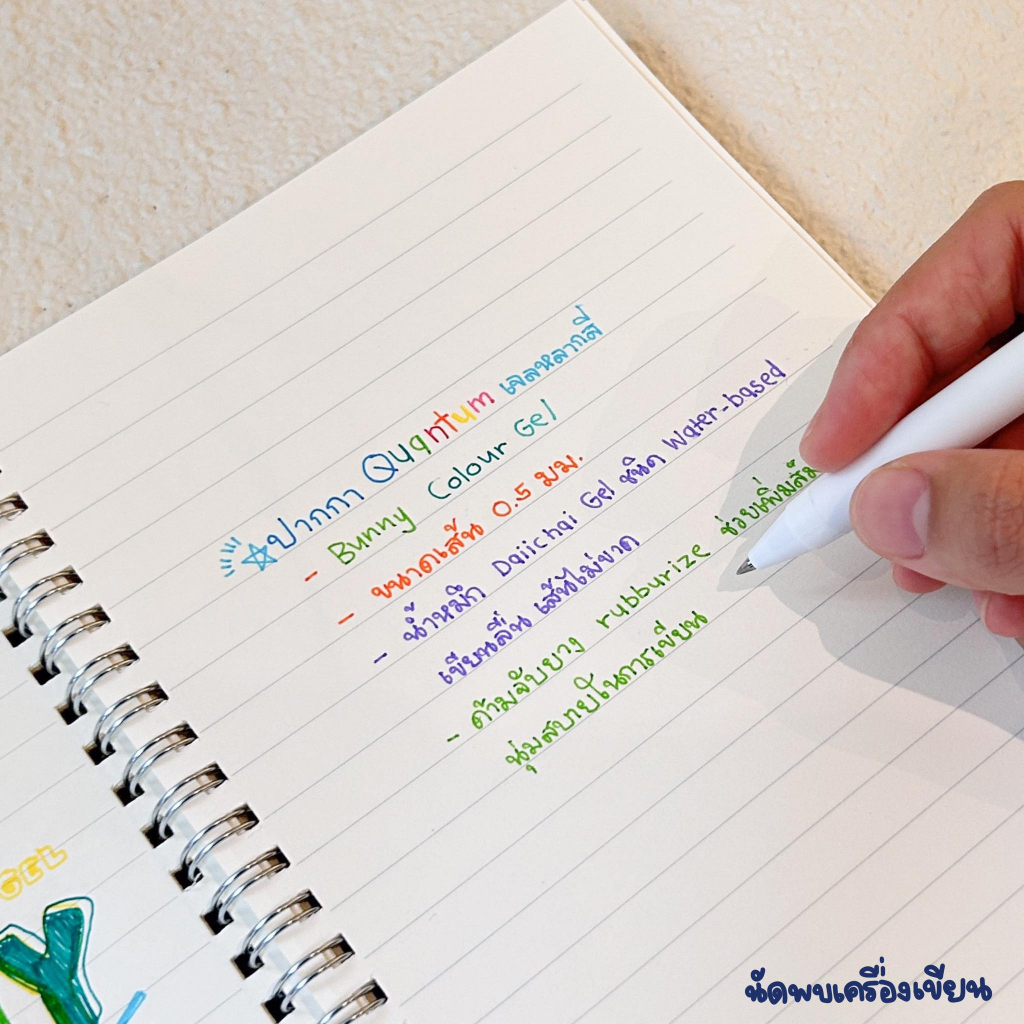 ปากกา Quantum เจลหลากสี
- Bunny Colour Gel
- ขนาดเส้น 0.5 มม.
- น้ำหมึก Daiichai Gel ชนิด Water-based
เขียนลื่น เส้นไม่ขาด
- ด้ามจับยาง rubburize ช่วยเพิ่มสัม
นุ่มสบายในการเขียน
GEL
Y
นัดพบเครื่องเขียน